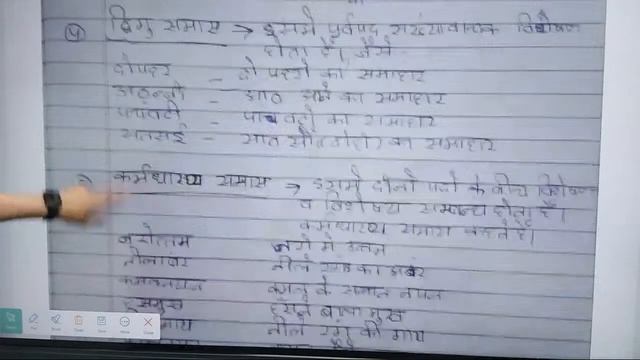 ५) द्विगु समास → इसमे पूर्वपद संख्यावाचक विशेषण
होता है, जैसे
दोपहर – दो पहरो का समाहार
अठन्नी – आठ आने का समाहार
पंचवटी – पांच वटो का समाहार
सतसई – सात सौ दोहो का समाहार
कर्मधारय समास → इसमे दोनो पदो के बीच विशेषण
व विशेष्य सम्बन्ध होता है।
कर्मधारय समास कहते है।
नरोत्तम नरो मे उत्तम
नीलांबर नीले रंग का अंबर
कमलनयन कमल के समान नयन
हंसमुख हँसने वाला मुख
नील रंग की गाय